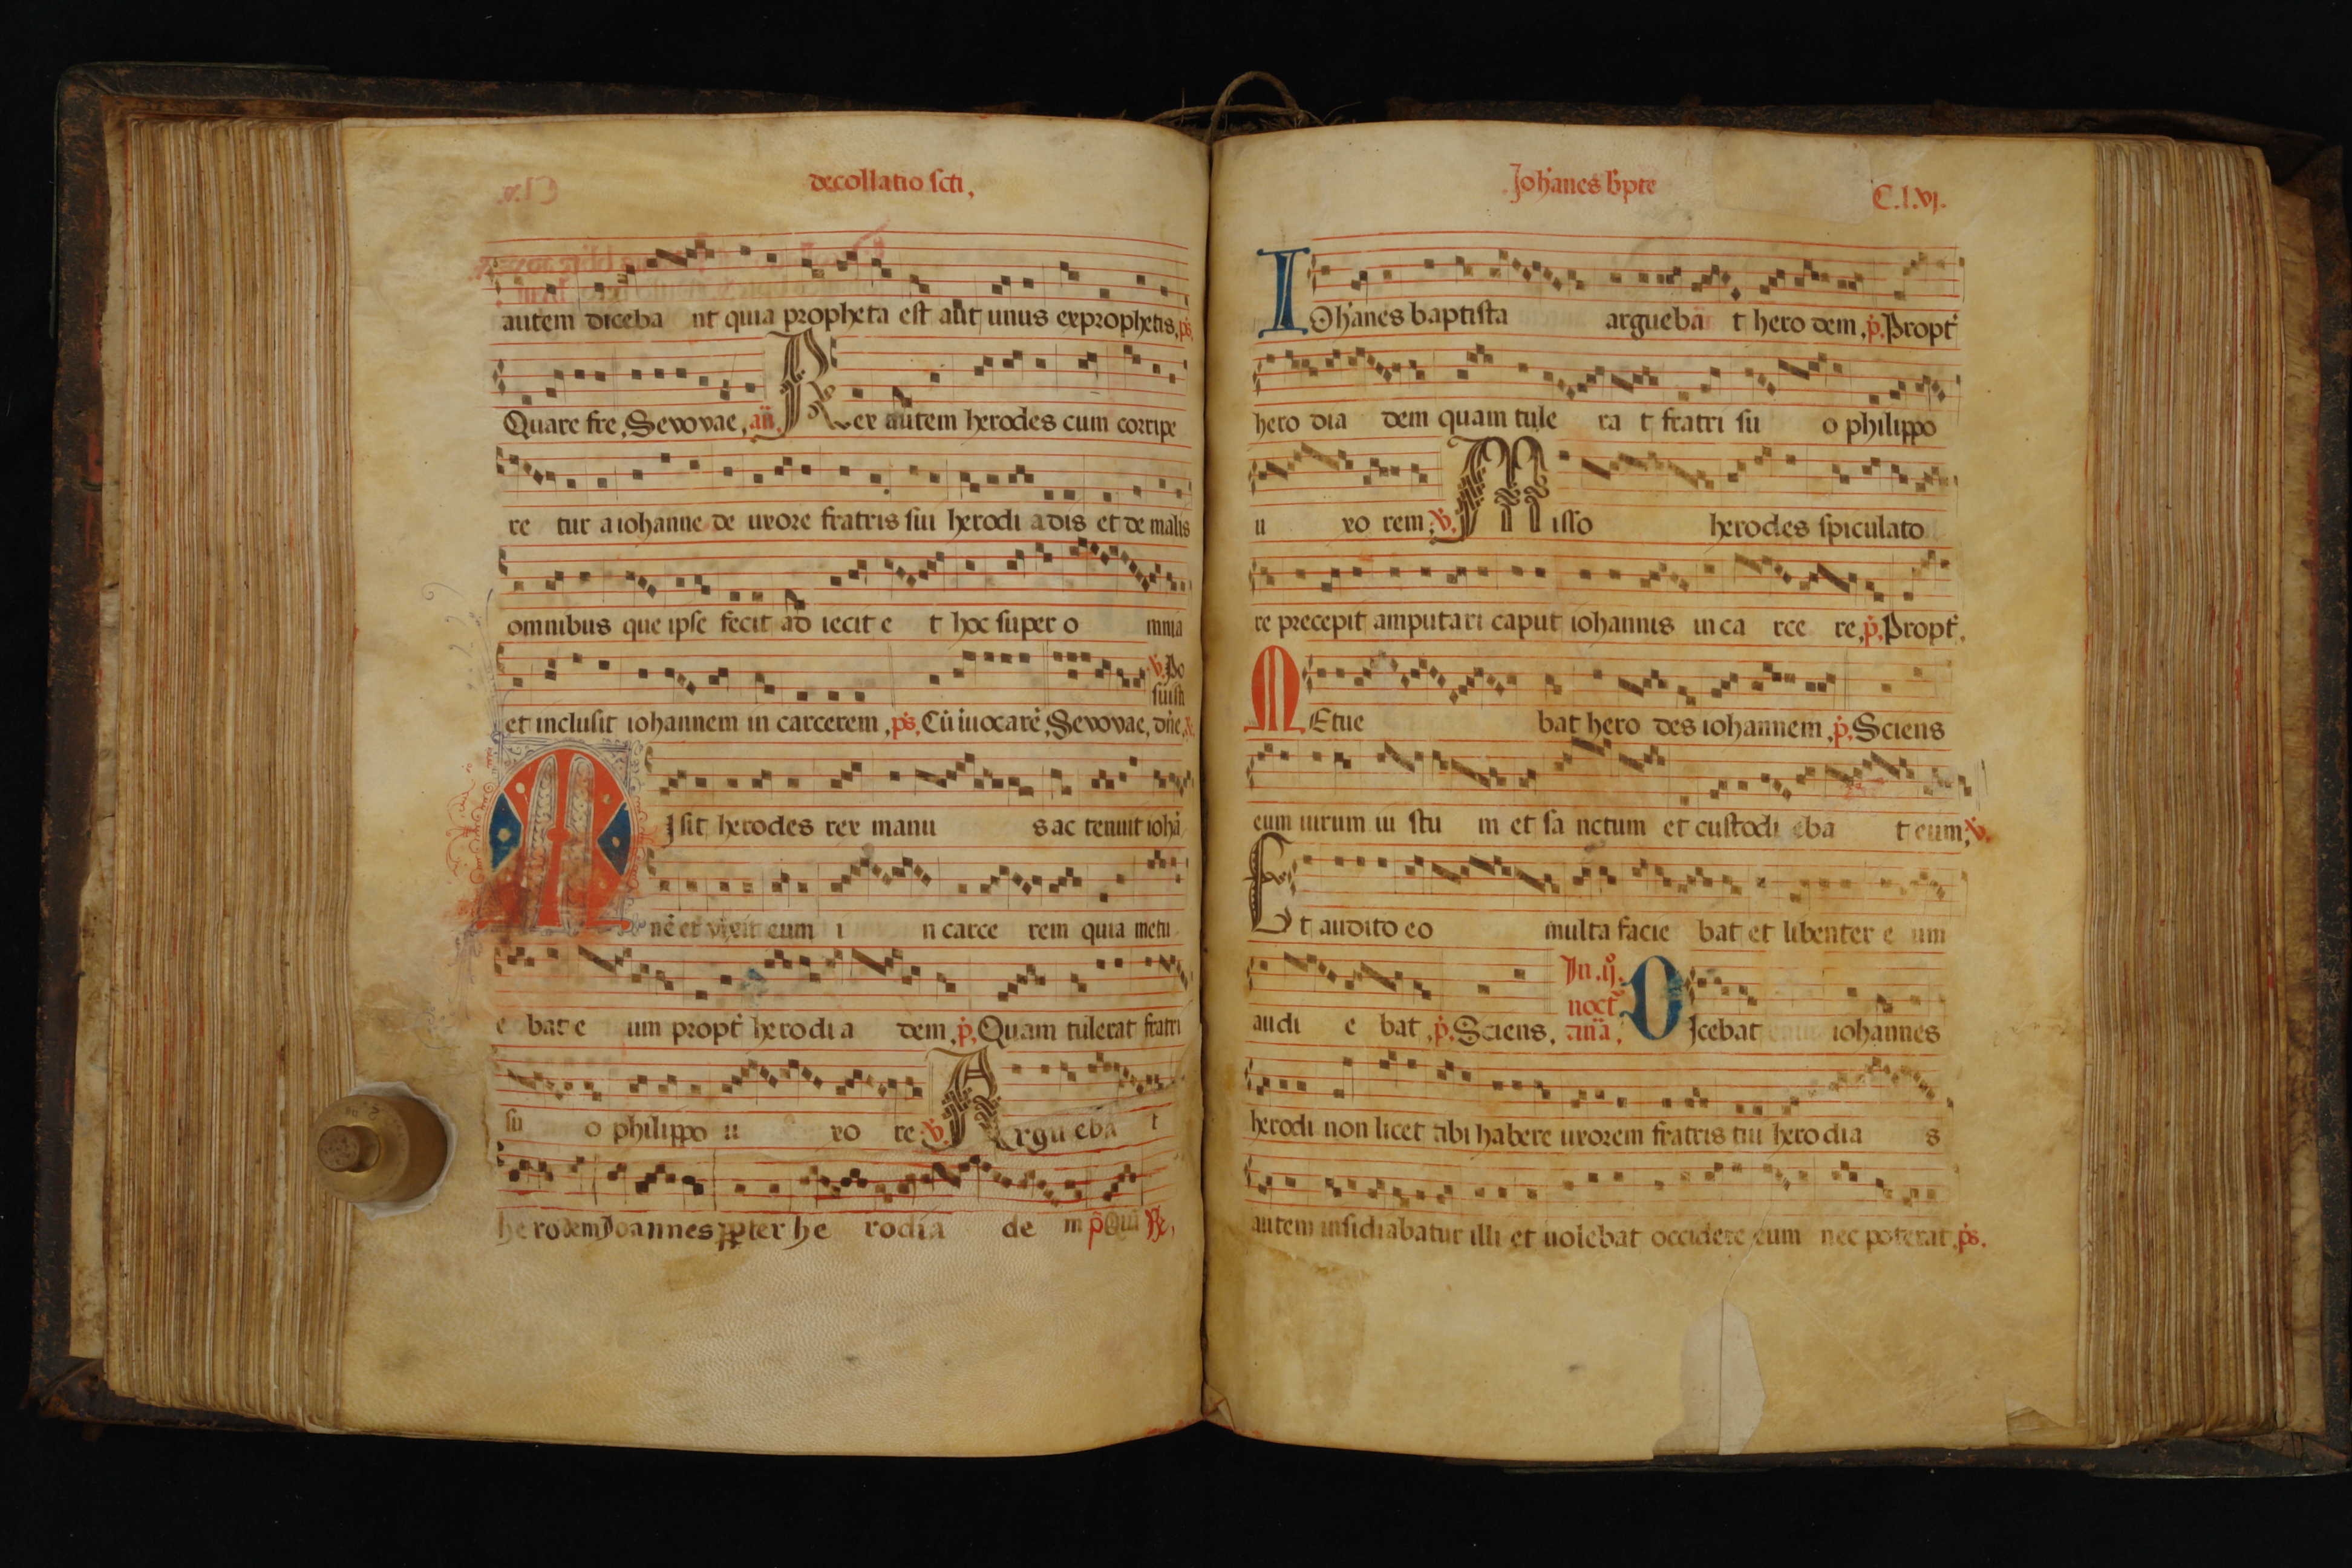 decollatio scti,
autem diceba nt quia propheta est aūt unus exprophetis, ps̄
Quare fre, Sevovae, an̄. Rex autem herodes cum corripe
re tur a iohanne de uxore fratris sui herodi adis et de malis
omnibus que ipse fecit ad iecit e t hoc super o mnia
et inclusit iohannem in carcerem, ps̄. Cū īuocarē, Sevovae, v̇. Po suisti dn̄e,
MIsit herodes rex manu s ac tenuit iohā
nē et vixit eum i n carce rem quia metu
e bat e um propt̄ herodi a dem, ṗ. Quam tulerat fratri
su o philippo u xo re v̇. Argueba t
he rodem Joannes ꝓpter he rodia de m p̄
Johanes bpte
C.l.vj.
IOhanes baptista argueba t hero dem, ṗ. Propt̄
hero dia dem quam tule ra t fratri su o philippo
u xo rem, v̇. Misso herodes spiculato
re precepit amputari caput iohannis in ca rce re, ṗ. Propt̄.
MEtue bat hero des iohannem, ṗ. Sciens
eum uirum iu stu m et sa nctum et custodi eba t eum, v̇.
Et audito eo multa facie bat et libenter e um
audi e bat, ṗ. Sciens, In .ij. noct̄ an̄a, DIcebat iohannes
herodi non licet tibi habere uxorem fratris tui hero dia s
autem insidiabatur illi et uolebat occidere eum nec poterat, ps̄.